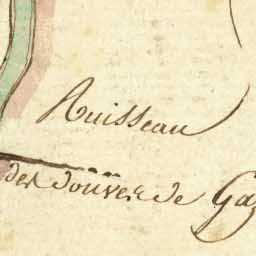 Ruisseau
des Douves de Ga